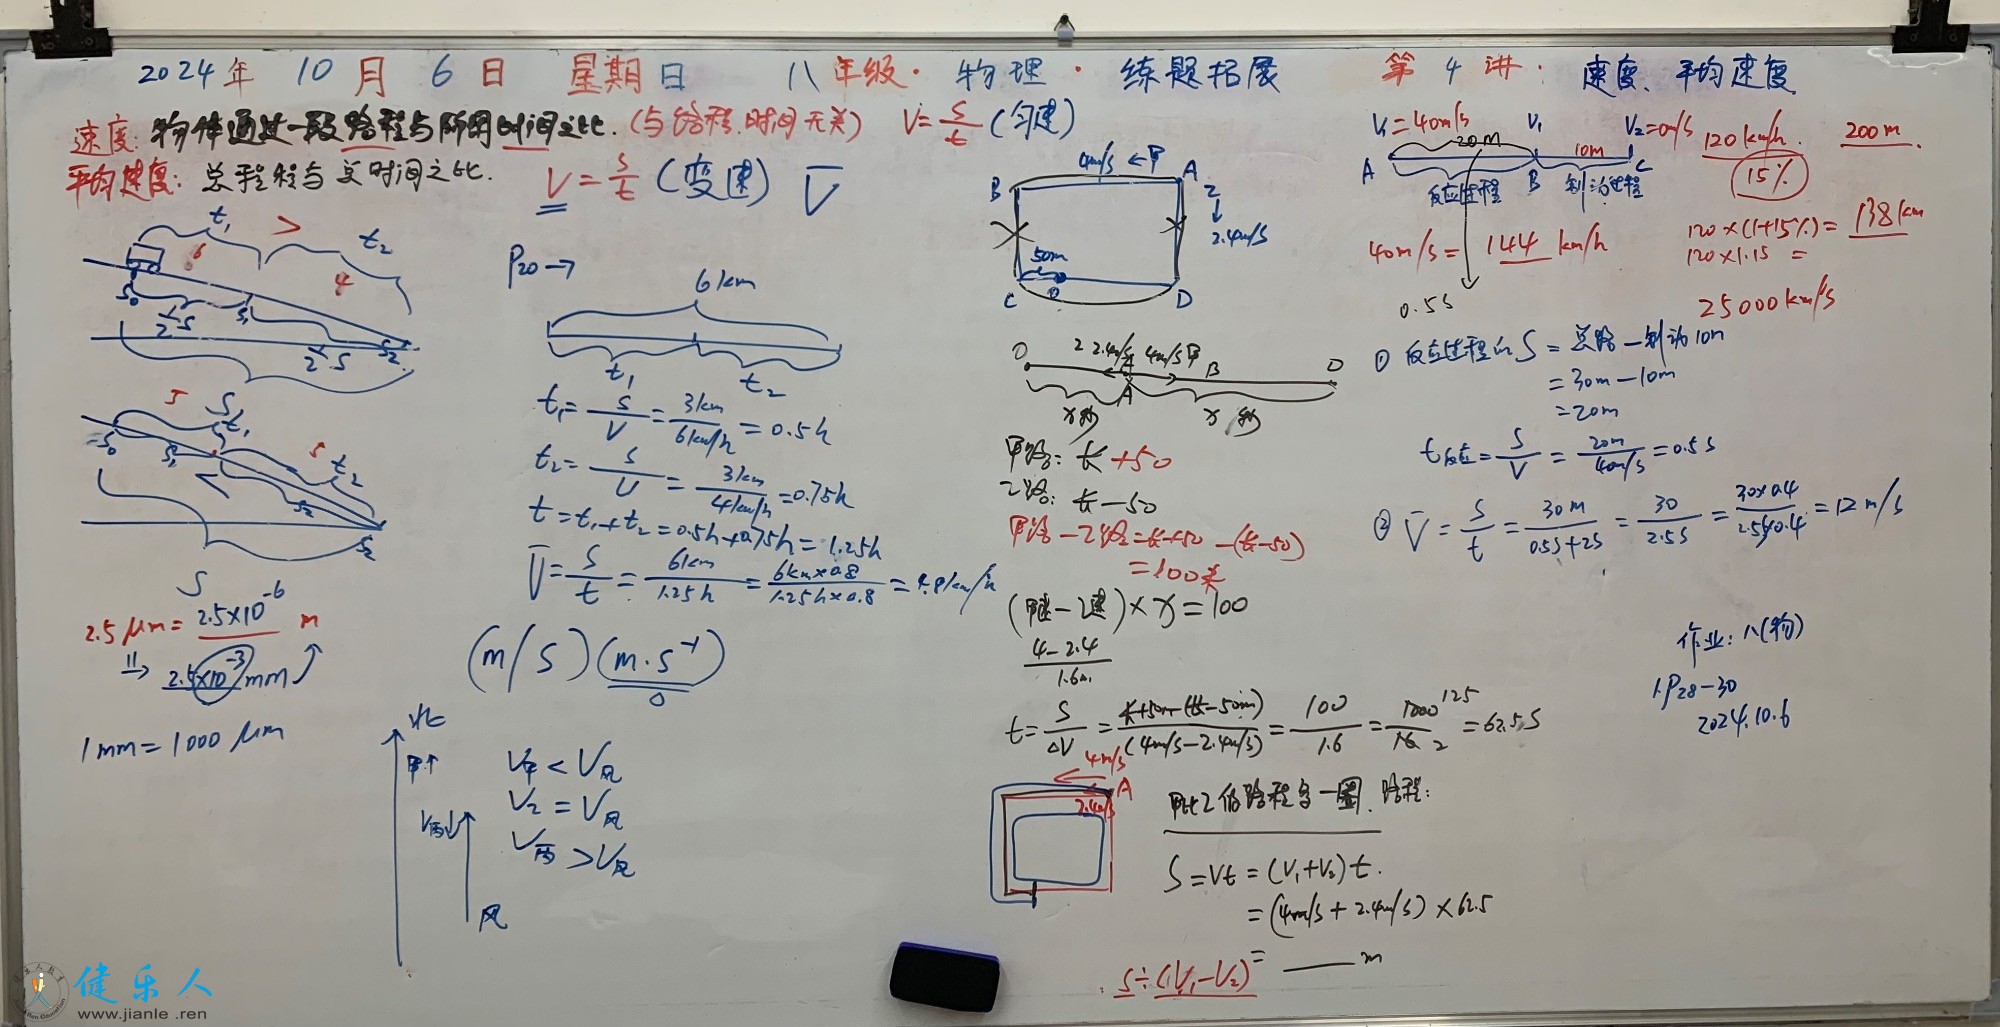 2024年 10月 6日 星期日 八年级·物理·练题拓展 第4讲: 速度、平均速度
速度: 物体通过一段路程与所用时间之比.(与路程.时间无关) V=s/t (匀速)
平均速度: 总路程与总时间之比. V=s/t (变速) V̅
t₁ > t₂
6 4
S₀ S₁ S₂
½S ½S
5 S t₁ 5 t₂
S₀ S₂
S
2.5μm=2.5×10⁻⁶ m
2.5×10⁻³mm
1mm=1000μm
P20→
6km
t₁ t₂
t₁=S/V=3km/6km/h=0.5h
t₂=S/V=3km/4km/h=0.75h
t=t₁+t₂=0.5h+0.75h=1.25h
V̅=S/t=6km/1.25h=6km×0.8/1.25h×0.8=4.8km/h
(m/s)(m·s⁻¹)
北
甲↑
V丙↓
风
V甲<V风
V乙=V风
V丙>V风
4m/s ←甲 A
B 乙
↓
2.4m/s
50m
C D
乙 2.4m/s 4m/s甲
A B
x秒 x秒
甲路: 长+50
乙路: 长-50
甲路-乙路=长+50-(长-50)
=100米
(甲速-乙速)×x=100
4-2.4
1.6
t=S/ΔV=长+50m-(长-50m)/(4m/s-2.4m/s)=100/1.6=1000/16=125/2=62.5s
4m/s A
2.4m/s
甲比乙的路程多一圈.路程:
S=Vt=(V₁+V₂)t.
=(4m/s+2.4m/s)×62.5
=____m
S÷(V₁-V₂)
V₁=40m/s V₁ V₂=0m/s
20m 10m
A B C
反应过程 制动过程
120km/h. 200m.
15%
40m/s=144km/h
120×(1+15%)=138km
120×1.15=
0.5s
25000km/s
① 反应过程的S=总路-制动10m
=30m-10m
=20m
t反应=S/V=20m/40m/s=0.5s
② V̅=S/t=30m/0.5s+2s=30/2.5s=30×0.4/2.5×0.4=12m/s
作业: 八(物)
1.P28-30
2024.10.6
健乐人
www.jianle .ren